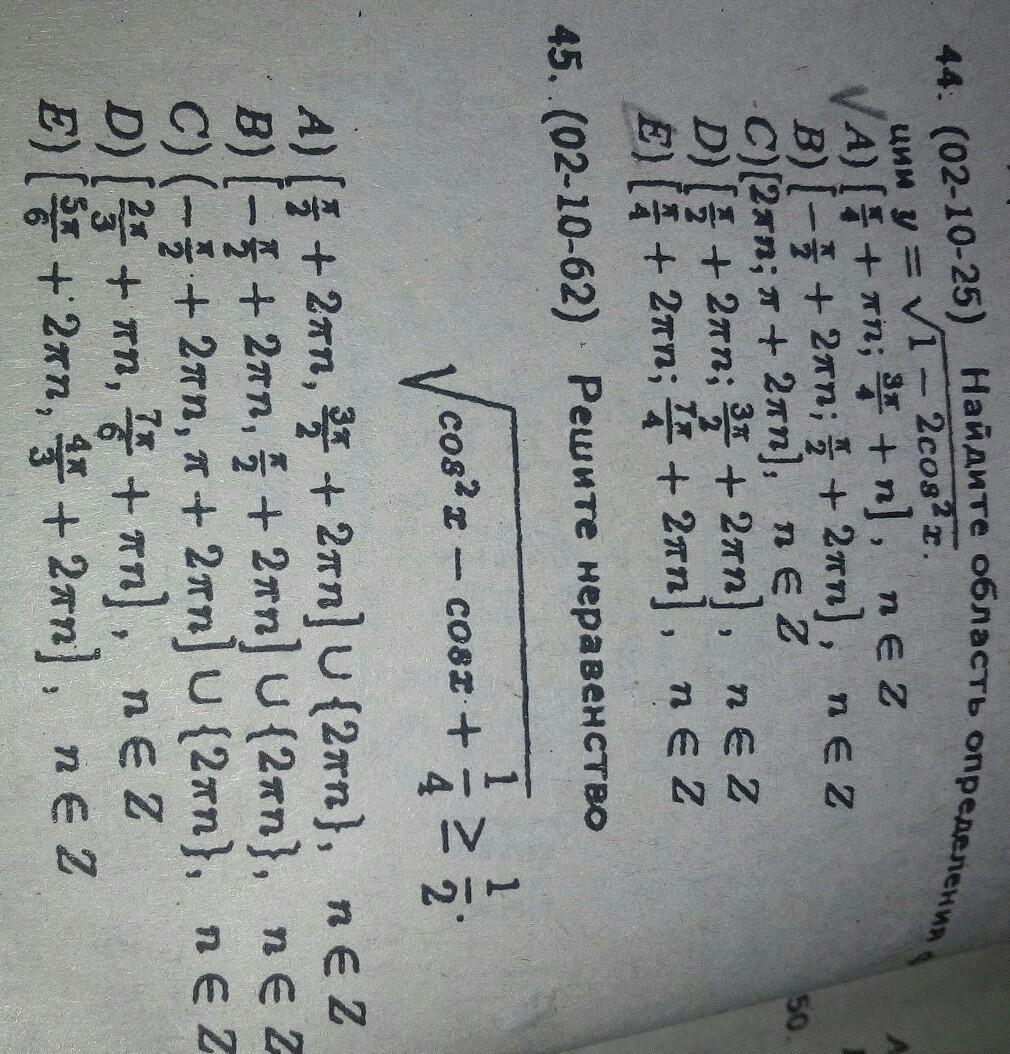 44. (02-10-25) Найдите область определения ф
ции y = √1 − 2cos²x.
A) [π/4 + πn; 3π/4 + n], n ∈ Z
B) [−π/2 + 2πn; π/2 + 2πn], n ∈ Z
C) [2πn; π + 2πn]; n ∈ Z
D) [π/2 + 2πn; 3π/2 + 2πn], n ∈ Z
E) [π/4 + 2πn; 7π/4 + 2πn], n ∈ Z
45. (02-10-62) Решите неравенство
√cos²x − cosx + 1/4 ≥ 1/2.
A) [π/2 + 2πn, 3π/2 + 2πn] ∪ {2πn}, n ∈ Z
B) [−π/2 + 2πn, π/2 + 2πn] ∪ {2πn}, n ∈ Z
C) (−π/2 + 2πn, π + 2πn] ∪ {2πn}, n ∈ Z
D) [2π/3 + πn, 7π/6 + πn], n ∈ Z
E) [5π/6 + 2πn, 4π/3 + 2πn], n ∈ Z
50.